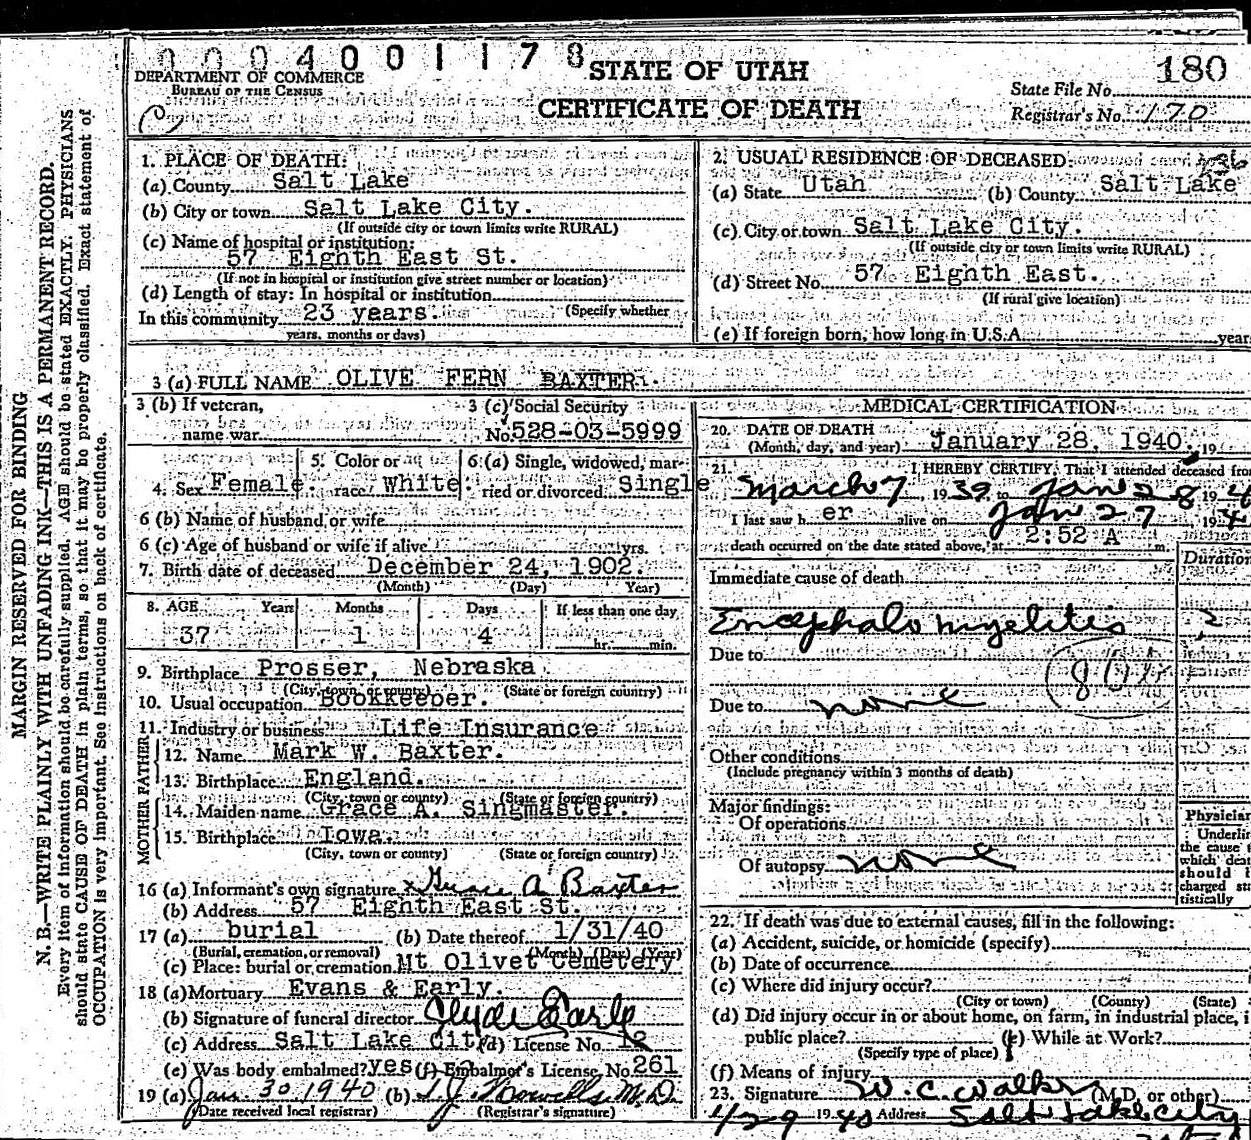 0004001178
DEPARTMENT OF COMMERCE
BUREAU OF THE CENSUS
STATE OF UTAH
CERTIFICATE OF DEATH
180
State File No.
Registrar's No. 170
MARGIN RESERVED FOR BINDING
N. B.—WRITE PLAINLY WITH UNFADING INK—THIS IS A PERMANENT RECORD.
Every item of information should be carefully supplied. AGE should be stated EXACTLY. PHYSICIANS
should state CAUSE OF DEATH in plain terms, so that it may be properly classified. Exact statement of
OCCUPATION is very important. See instructions on back of certificate.
1. PLACE OF DEATH:
(a) County Salt Lake
(b) City or town Salt Lake City.
(If outside city or town limits write RURAL)
(c) Name of hospital or institution:
57 Eighth East St.
(If not in hospital or institution give street number or location)
(d) Length of stay: In hospital or institution
(Specify whether
In this community 23 years.
years, months or days)
2. USUAL RESIDENCE OF DECEASED:
(a) State Utah (b) County Salt Lake
(c) City or town Salt Lake City.
(If outside city or town limits write RURAL)
(d) Street No. 57 Eighth East.
(If rural give location)
(e) If foreign born, how long in U.S.A. year
3 (a) FULL NAME OLIVE FERN BAXTER.
3 (b) If veteran,
name war
3 (c) Social Security
No. 528-03-5999
4. Sex Female. 5. Color or race White. 6 (a) Single, widowed, married or divorced Single
6 (b) Name of husband or wife
6 (c) Age of husband or wife if alive yrs.
7. Birth date of deceased December 24, 1902.
(Month) (Day) Year)
8. AGE Years Months Days If less than one day
37 1 4 hr. min.
9. Birthplace Prosser, Nebraska
(City, town or county) (State or foreign country)
10. Usual occupation Bookkeeper.
11. Industry or business Life Insurance
FATHER
12. Name Mark W. Baxter.
13. Birthplace England.
(City, town or county) (State or foreign country)
MOTHER
14. Maiden name Grace A. Singmaster.
15. Birthplace Iowa.
(City, town or county) (State or foreign country)
16 (a) Informant's own signature x Grace A Baxter
(b) Address 57 Eighth East St.
17 (a) burial (b) Date thereof 1/31/40
(Burial, cremation, or removal) (Month) (Day) (Year)
(c) Place: burial or cremation Mt Olivet Cemetery
18 (a) Mortuary Evans & Early.
(b) Signature of funeral director Clyde Early
(c) Address Salt Lake City (d) License No. 12
(e) Was body embalmed? yes (f) Embalmer's License No. 261
19 (a) Jan. 30, 1940 (b) M.D.
(Date received local registrar) (Registrar's signature)
MEDICAL CERTIFICATION
20. DATE OF DEATH
(Month, day, and year) January 28, 1940. 19
21. I HEREBY CERTIFY, That I attended deceased from
March 7 1939 to Jan 28 19 4
I last saw her alive on Jan 27 19 4
death occurred on the date stated above, at 2:52 A m.
Immediate cause of death Duration
Encephalo myelitis ?
Due to
Due to none
Other conditions
(Include pregnancy within 3 months of death)
Major findings:
Of operations
Of autopsy none
Physician
Underli
the cause t
which deat
should b
charged sta
tistically
22. If death was due to external causes, fill in the following:
(a) Accident, suicide, or homicide (specify)
(b) Date of occurrence
(c) Where did injury occur?
(City or town) (County) (State)
(d) Did injury occur in or about home, on farm, in industrial place, i
public place? (e) While at Work?
(Specify type of place)
(f) Means of injury
23. Signature W. C. Walker (M.D. or other)
1/29 1940 Address Salt Lake City